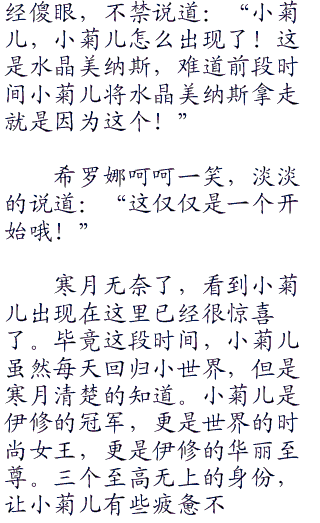 经傻眼，不禁说道：“小菊
儿，小菊儿怎么出现了！这
是水晶美纳斯，难道前段时
间小菊儿将水晶美纳斯拿走
就是因为这个！”
希罗娜呵呵一笑，淡淡
的说道：“这仅仅是一个开
始哦！”
寒月无奈了，看到小菊
儿出现在这里已经很惊喜
了。毕竟这段时间，小菊儿
虽然每天回归小世界，但是
寒月清楚的知道。小菊儿是
伊修的冠军，更是世界的时
尚女王，更是伊修的华丽至
尊。三个至高无上的身份，
让小菊儿有些疲惫不